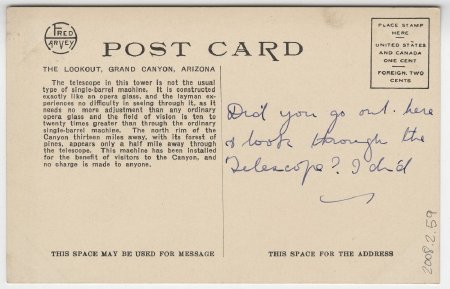 FRED
HARVEY
POST CARD
PLACE STAMP
HERE
UNITED STATES
AND CANADA
ONE CENT
FOREIGN, TWO
CENTS
THE LOOKOUT, GRAND CANYON, ARIZONA
The telescope in this tower is not the usual
type of single-barrel machine. It is constructed
exactly like an opera glass, and the layman ex-
periences no difficulty in seeing through it, as it
needs no more adjustment than any ordinary
opera glass and the field of vision is ten to
twenty times greater than through the ordinary
single-barrel machine. The north rim of the
Canyon thirteen miles away, with its forest of
pines, appears only a half mile away through
the telescope. This machine has been installed
for the benefit of visitors to the Canyon, and
no charge is made to anyone.
Did you go out here
& look through the
Telescope? I did
THIS SPACE MAY BE USED FOR MESSAGE
THIS SPACE FOR THE ADDRESS
2008.2.59